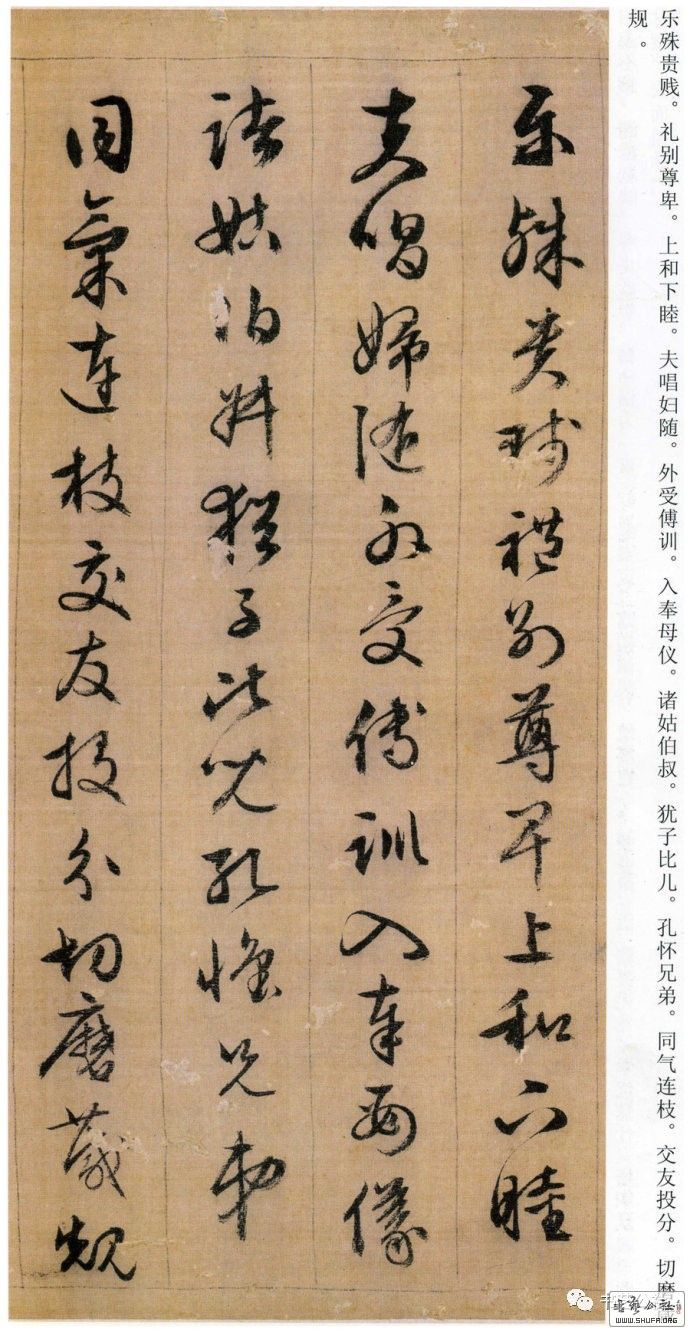 乐殊贵贱。礼别尊卑。上和下睦。夫唱妇随。外受傅训。入奉母仪。诸姑伯叔。犹子比儿。孔怀兄弟。同气连枝。交友投分。切磨
规。
乐殊贵贱礼别尊卑上和下睦
夫唱婦随外受傅训入奉母儀
诸姑伯叔猶子比兒孔懷兄弟
同氣連枝交友投分切磨箴規
書艺公社
WWW.SHUFA.ORG